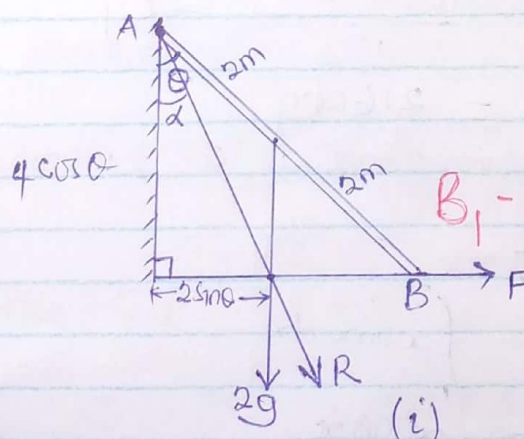 A
θ
2m
α
4cosθ
2m
B₁ -
2sinθ
B
F
R
2g
(i)